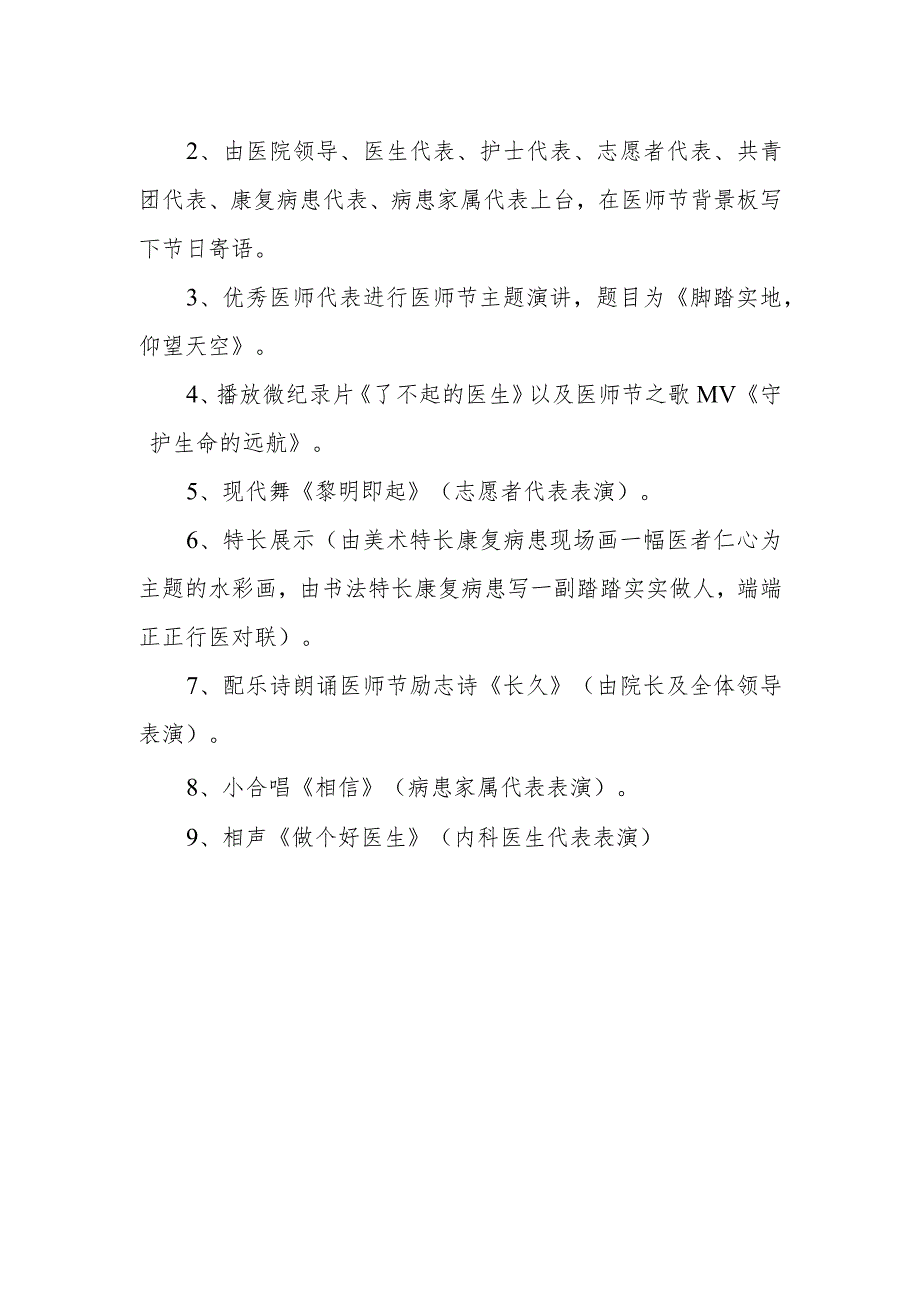 2、由医院领导、医生代表、护士代表、志愿者代表、共青
团代表、康复病患代表、病患家属代表上台，在医师节背景板写
下节日寄语。
3、优秀医师代表进行医师节主题演讲，题目为《脚踏实地，
仰望天空》。
4、播放微纪录片《了不起的医生》以及医师节之歌 MV《守
护生命的远航》。
5、现代舞《黎明即起》（志愿者代表表演）。
6、特长展示（由美术特长康复病患现场画一幅医者仁心为
主题的水彩画，由书法特长康复病患写一副踏踏实实做人，端端
正正行医对联）。
7、配乐诗朗诵医师节励志诗《长久》（由院长及全体领导
表演）。
8、小合唱《相信》（病患家属代表表演）。
9、相声《做个好医生》（内科医生代表表演）